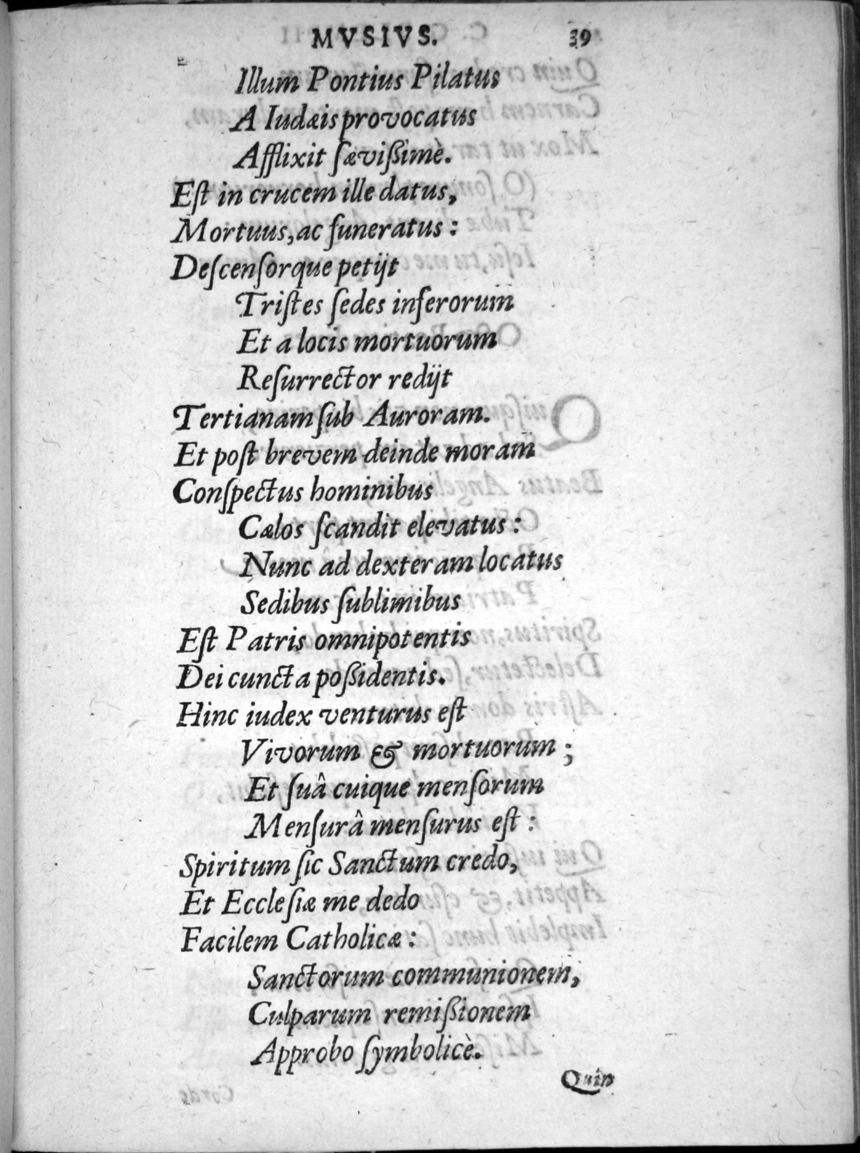 MVSIVS. 39
Illum Pontius Pilatus
A Iudæis provocatus
Afflixit ſævißimè.
Eſt in crucem ille datus,
Mortuus, ac funeratus :
Deſcenſorque petijt
Triſtes ſedes inferorum
Et a locis mortuorum
Reſurrector redijt
Tertianam ſub Auroram.
Et poſt brevem deinde moram
Conſpectus hominibus
Cælos ſcandit elevatus :
Nunc ad dexteram locatus
Sedibus ſublimibus
Eſt Patris omnipotentis
Dei cuncta poßidentis.
Hinc iudex venturus eſt
Vivorum & mortuorum ;
Et ſuâ cuique menſorum
Menſurâ menſurus eſt :
Spiritum ſic Sanctum credo,
Et Eccleſiæ me dedo
Facilem Catholicæ :
Sanctorum communionem,
Culparum remißionem
Approbo ſymbolicè.
Quin